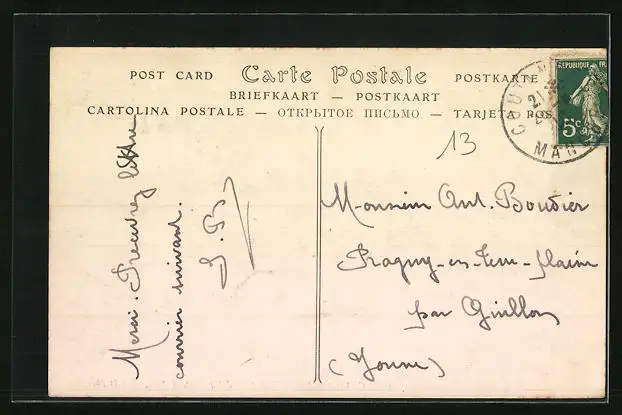 POST CARD Carte Postale POSTKARTE
BRIEFKAART — POSTKAART
CARTOLINA POSTALE — ОТКРЫТОЕ ПИСЬМО — TARJETA POS
REPUBLIQUE FR
5c
21
MAN
13
Merci. Recevrez lettre
courrier suivant.
Monsieur Ant. Boudier
Pragny-en-Terre-plaine
par Guillon
(Yonne)